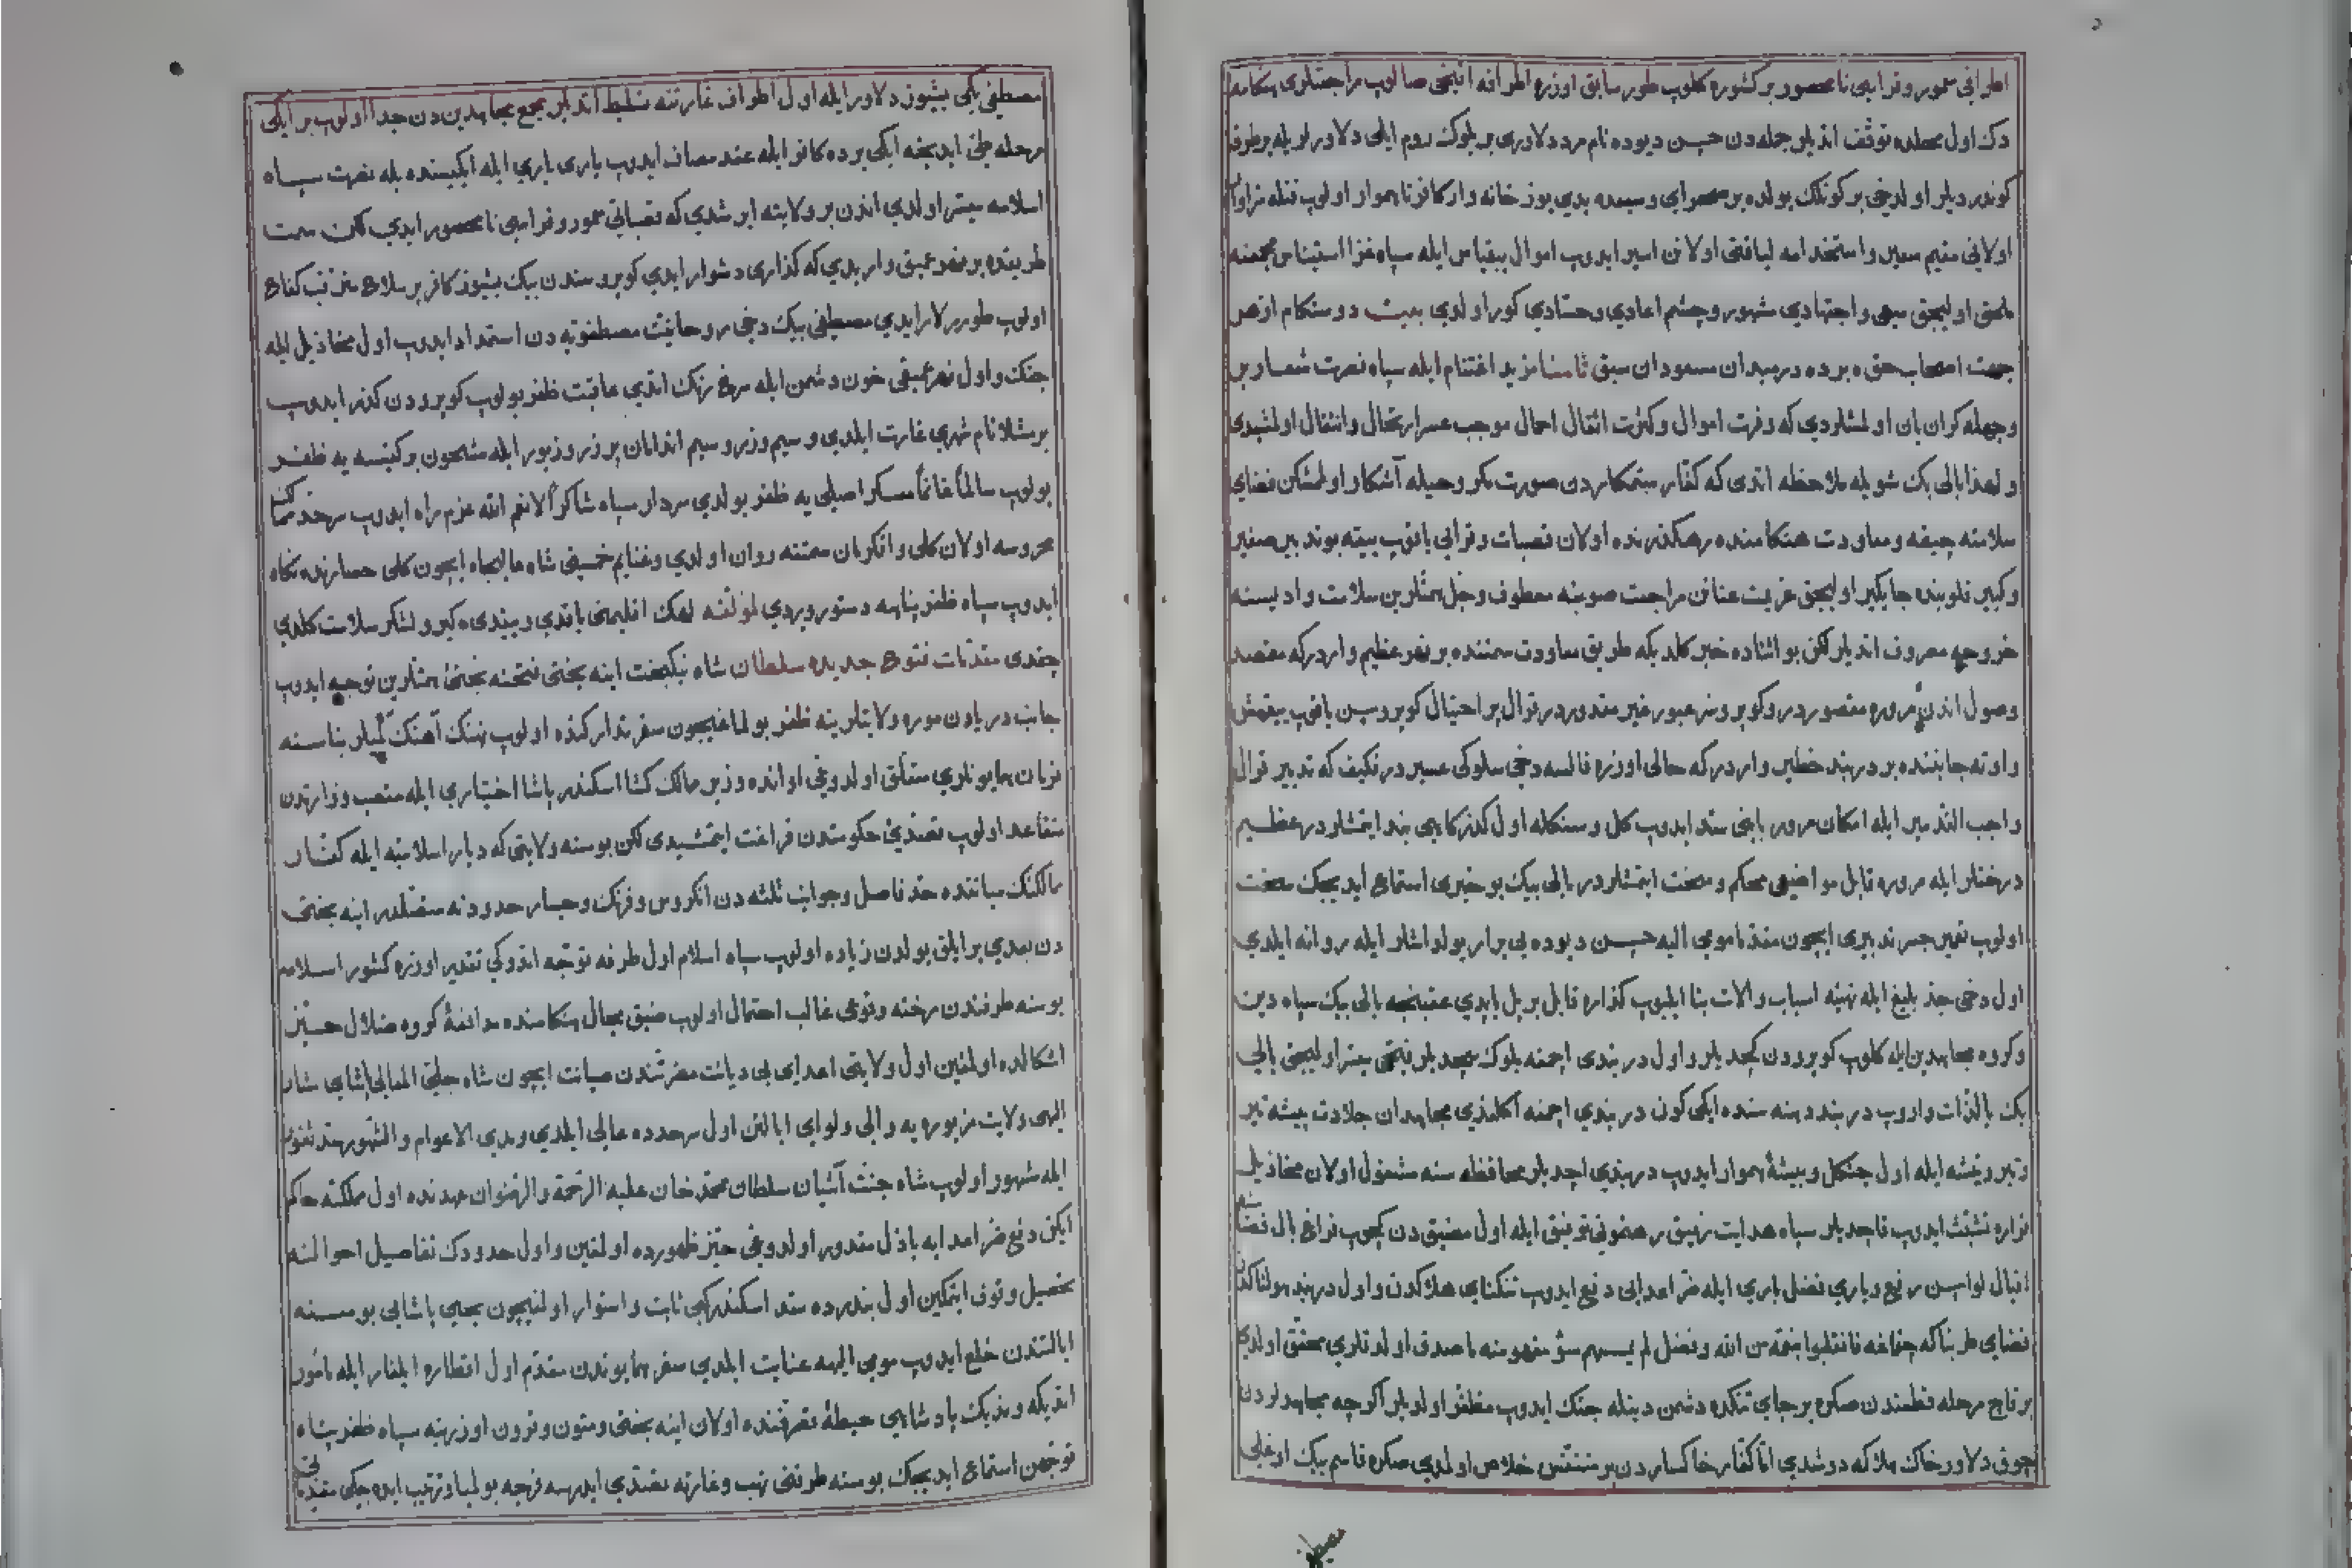 اطرافی معمور و قراسی نامحصور بر کشوره کلوب طور سابق اوزره اطرافه اقنجی صالوب مراجعتلری هنکامنه
دك اول محلده توقف اتدیلر جمله دن حسن دیوده نام مرد دلاوری بر بلوك روم ایلی دلاورلریله بر طرفه
کوندردیلر اول دخی بر کونلك یولده بر صحرای وسیعده یدی یوز خانه وار کافر ناهموار اولوب قتله سزاوار
اولانی مقیم سعیر و استخدامه لیاقتی اولانن اسیر ایدوب اموال بیقیاس ایله سپاه غزا استیناس مجمعنه
ملحق اولیجق سعی و اجتهادی مشهور و چشم اعادی و حسادی کور اولدی بیت دوستکام از هر
جهت اصحاب حق برده در میدان مسعودان سبق ثامنا مزید اغتنام ایله سپاه نصرت شعار بر
وجهله کران بار اولمشلردی که وفرت اموال و کثرت اثقال احمال موجب عسر ارتحال و انتقال اولمشیدی
و لهذا بالی بك شویله ملاحظه اتدی که کفار ستمکاردن صورت مکر و حیله آشکار اولمشکن فضای
سلامته چیقه و معاودت هنکامنده رهکذرنده اولان قصبات و قرایی یاقوب ییقه بو تدبیر صغیر
و کبیر قلوبنده جایکیر اولیجق عزیمت عنانن مراجعت صوبنه معطوف و جل همتلرین سلامت وادیسنه
خروجه مصروف اتدیلر لکن بو اثناده خبر کلدیکه طریق معاودت سمتنده بر نهر عظیم واردر که مقصد
وصول اندن مروره مقصوردر و کوپروسز عبور غیر مقدوردر قرال پر احتیال کوپروسن یاقوب ییقمش
و اوته جانبنده بر دربند خطیر واردر که حالی اوزره قالسه دخی سلوکی عسیردر فکیف که تدبیر قرال
واجب التدمیر ایله امکان مرور یابجی سد ایدوب کل و سنکله اول کذرکاهی بند ایتمشلردر عظیم
درختلر ایله مروره قابل مواضعی محکم و سخت ایتمشلردر بالی بیك بو خبری استماع ایدیجك سخت
اولوب تعمیر جسر تدبیری ایچون مقدما مومی الیه حسن دیوده یی یرار یولداشلر ایله روانه ایلدی
اول دخی جد بلیغ ایله تهیئه اسباب و آلات بنا ایلیوب کذاره قابل بر پل یاپدی عقبنجه بالی بیك سپاه دین
و کروه مجاهدین ایله کلوب کوپرودن کچدیلر و اول دربندی اچمغه بلوك سچدیلر فتحی میسر اولیجق بالی
بك بالذات واروب دربند دهنه سنده ایکی کون دربندی اچمغه اکلندی مجاهدان جلادت پیشه تبر
و تیر و تیشه ایله اول جنکل و بیشۀ هموار ایدوب دربندی اچدیلر محافظه سنه مشغول اولان مخاذیل
فراره تشبث ایدوب قاچدیلر سپاه هدایت رفیق رهنمونی توفیق ایله اول مضیق دن کچوب فراغ بال
اقبال لواسن رفیع و یاری فضل باری ایله ضر اعدایی دفع ایدوب تنکنای هلاکدن و اول دربند هولناکدن
فضای طربناکه چقاغه فانقلبوا بنعمة من الله و فضل لم یمسهم سوء مفهومنه ماصدق اولدقلری محقق اولدی
بر قاچ مرحله قطعندن صکره بر جای تنکده دشمن دینله جنك ایدوب مظفر اولدیلر اکرچه مجاهدلردن
چوق دلاور خاك هلاکه دوشدی اما کفار خاکساردن بر متنفس خلاص اولمدی صکره قاسم بیك اوغلی
مصطفی بکی بشیوز دلاور ایله اول اطراف غارتنه تسلیط اتدیلر مجمع مجاهدین دن جدا اولوب بر ایکی
مرحله طی ایدیجه ایکی یرده کافر ایله عقد مصاف ایدوب یاری باری ایله ایکیسنده بله نصرت سپاه
اسلامه میسر اولدی اندن بر ولایته ایرشدی که قصباتی معمور و قراسی نامحصور ایدی لکن سمت
طریقنده بر نهر عمیق وار یدی که کذاری دشوار ایدی کوپروسندن بیك بشیوز کافر پر سلاح مترقب کفاح
اولوب طوررلار ایدی مصطفی بیك دخی روحانیت مصطفویه دن استمداد ایدوب اول مخاذیل ایله
جنك و اول نهر عمیقی خون دشمن ایله سرخ رنك اتدی عاقبت ظفر بولوب کوپرودن کذر ایدوب
برمشلا نام شهری غارت ایلدی و سیم و زر و سیم اندامان پر زر و زیور ایله مشحون بر کنیسه یه ظفر
بولوب سالماً غانماً معسکر اصلی یه ظفر بولدی سردار سپاه شاکراً لانعم الله عزم راه ایدوب سرحد
محروسه اولان کلی و اقکرمان سمتنه روان اولدی و غنایم خمسینی شاه عالیجاه ایچون کلی حصارنده نکاه
ایدوب سپاه ظفر پناهه دستور ویردی لمؤلفه لهك اقلیمنی یاقدی و ییقدی کیرو لشکر سلامت کلدی
چقدی مقدمات فتوح جدیده سلطان شاه نیکبخت اینه بختی فتحنه بختیٔ همتلرین توجیه ایدوب
جانب دریادن موره ولایتلرینه ظفر بولماغیچون سفر تدارکنده اولوب نهنك آهنك کمیلر بناسنه
فرمان همایونلری متعلق اولدوغی اوانده وزیر ممالك کشا اسکندر پاشا اختیاری ایله منصب وزارتدن
متقاعد اولوب تصدیٔ حکومتدن فراغت ایتمشیدی لکن بوسنه ولایتی که دیار اسلامیه ایله کفار
ممالکنك میاننده حد فاصل و جوانب ثلثه دن انکروس و فرنك و حصار حدودنه متصلدر اینه بختی
دن یمدی بر ایلق یولدن زیاده اولوب سپاه اسلام اول طرفه توجه اتدوکی تقدیر اوزره کشور اسلامه
بوسنه طرفندن رخنه وقوعی غالب احتمال اولوب ضیق مجال هنکامنده مدافعۀ کروه ضلال حیز
اشکالده اولمغین اول ولایتی اعدای بی دیانت مضرتندن صیانت ایچون شاه جلی المعالی پاشای مشار
الیهی ولایت مزبوره یه والی و لوای ایالتن اول سرحدده عالی ایلدی و مدی الاعوام و الشهور سد ثغور
ایله مشهور اولوب شاه جنت آشیان سلطان محمد خان علیه الرحمة و الرضوان عهدنده اول مملکته حاکم
ایکن دفع ضر اعدایه باذل مقدور اولدوغی حیز ظهورده اولمغین و اول حدودك تفاصیل احوالنه
تحصیل وقوف ایتمکین اول بندرده سد اسکندر کبی ثابت و استوار اولمغیچون یحیی پاشایی بوسنه
ایالتندن خلع ایدوب مومی الیهه عنایت ایلدی سفر همایوندن مقدم اول اقطاره ایلغار ایله مأمور
اتدیکه وندیك پادشاهی حیطۀ تصرفنده اولان اینه بختی و متون و قرون اوزرینه سپاه ظفر پناه
توجهن استماع ایدیجك بوسنه طرفنی نهب و غارته تصدی ایدرسه فرجه بولمیا و ترتیب ایده جکی